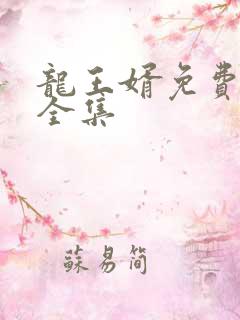 龍王婿免費
全集
蘇易簡